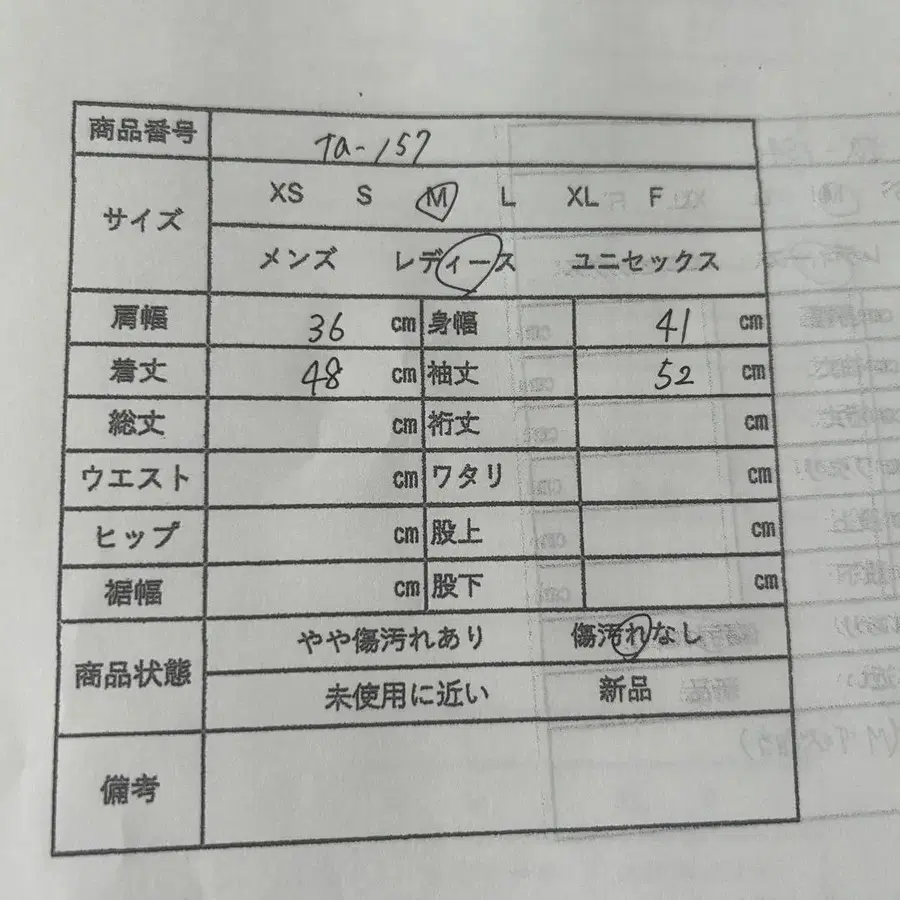 商品番号 Ta-157
サイズ XS S M L XL F
メンズ レディース ユニセックス
肩幅 36 cm 身幅 41 cm
着丈 48 cm 袖丈 52 cm
総丈 cm 裄丈 cm
ウエスト cm ワタリ cm
ヒップ cm 股上 cm
裾幅 cm 股下 cm
商品状態 やや傷汚れあり 傷汚れなし
未使用に近い 新品
備考